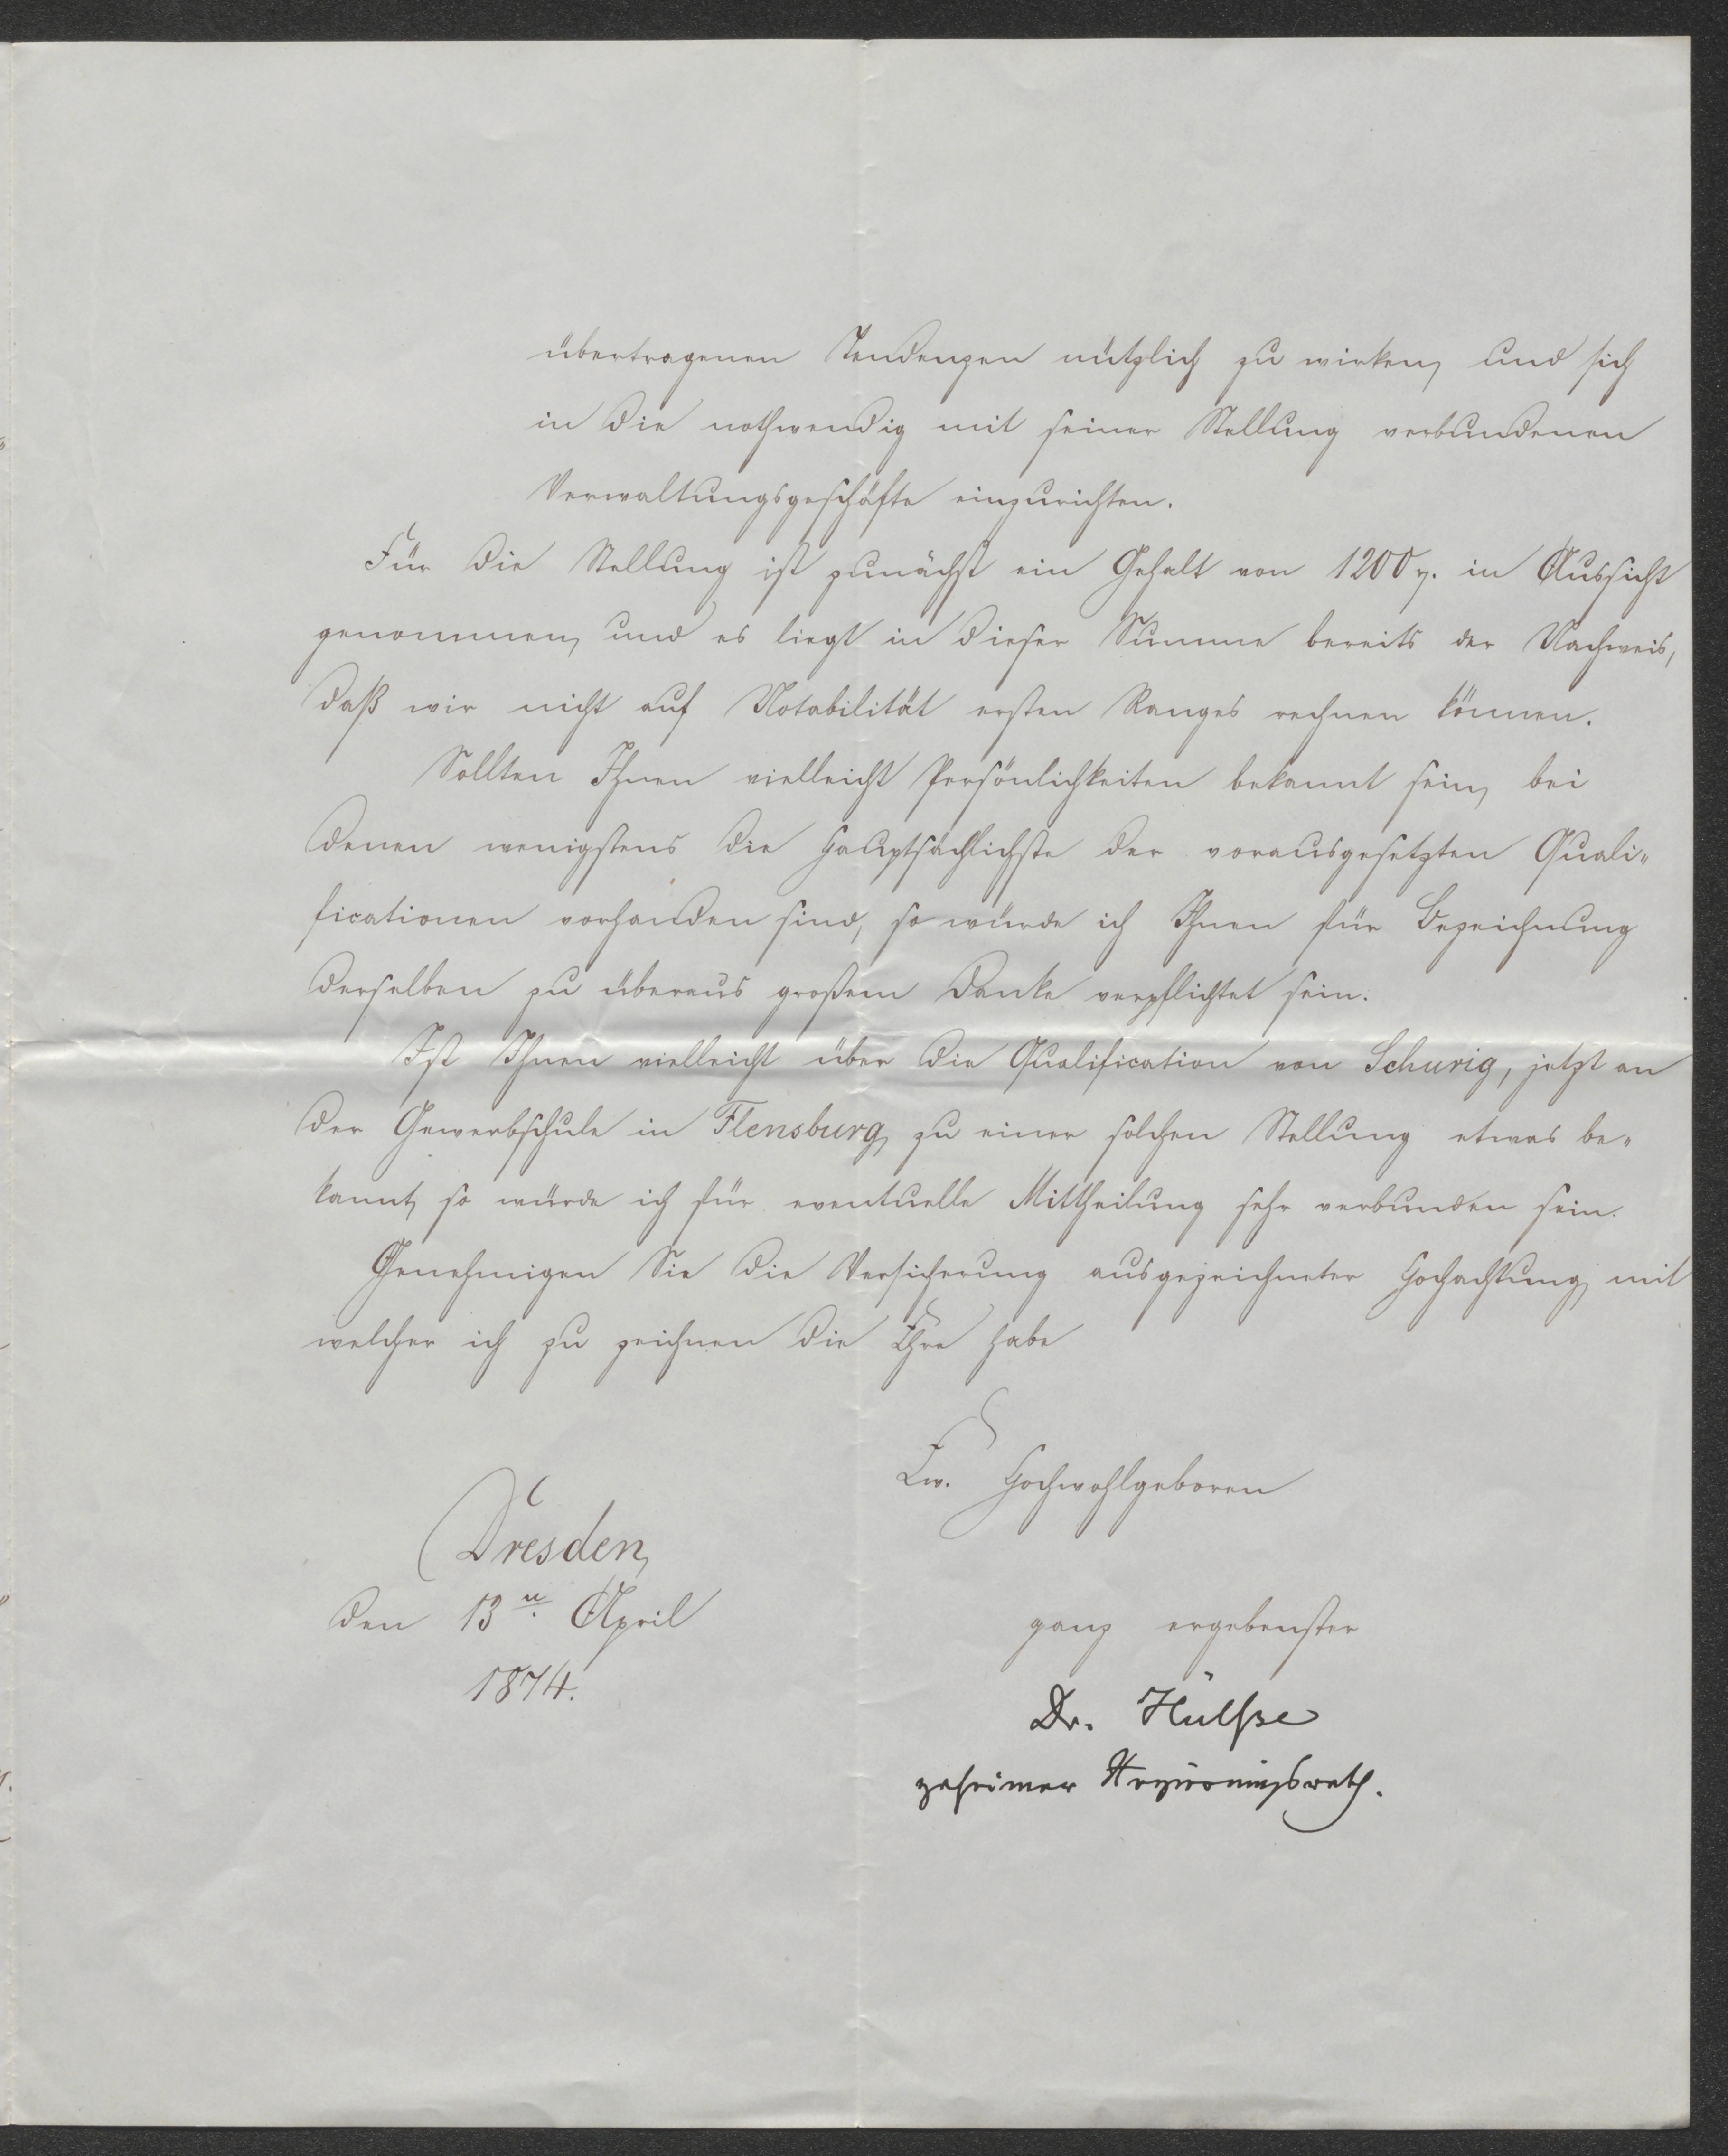 übertragenen Tendenzen nützlich zu wirken, und sich
in die nothwendig mit seiner Stellung verbundenen
Verwaltungsgeschäfte einzurichten.
Für die Stellung ist zunächst ein Gehalt von 1200 in Aussicht
genommen, und es liegt in dieser Summe bereits der Nachweis,
daß wir nicht auf Notabilität ersten Ranges rechnen können.
Sollten Ihnen vielleicht Persönlichkeiten bekannt sein, bei
denen wenigstens die hauptsächlichste der vorausgesetzten Quali-
ficationen vorhanden sind, so würde ich Ihnen für Bezeichnung
derselben zu überaus großem Danke verpflichtet sein.
Ist Ihnen vielleicht über die Qualification von Schurig, jetzt an
der Gewerbschule in Flensburg, zu einer solchen Stellung etwas be-
kannt, so würde ich für eventuelle Mittheilung sehr verbunden sein.
Genehmigen Sie die Versicherung ausgezeichneter Hochachtung, mit
welcher ich zu zeichnen die Ehre habe
Ew. Hochwohlgeboren
Dresden,
den 13n. April
1874.
ganz ergebenster
Dr. Hülße
geheimer Regierungsrath.